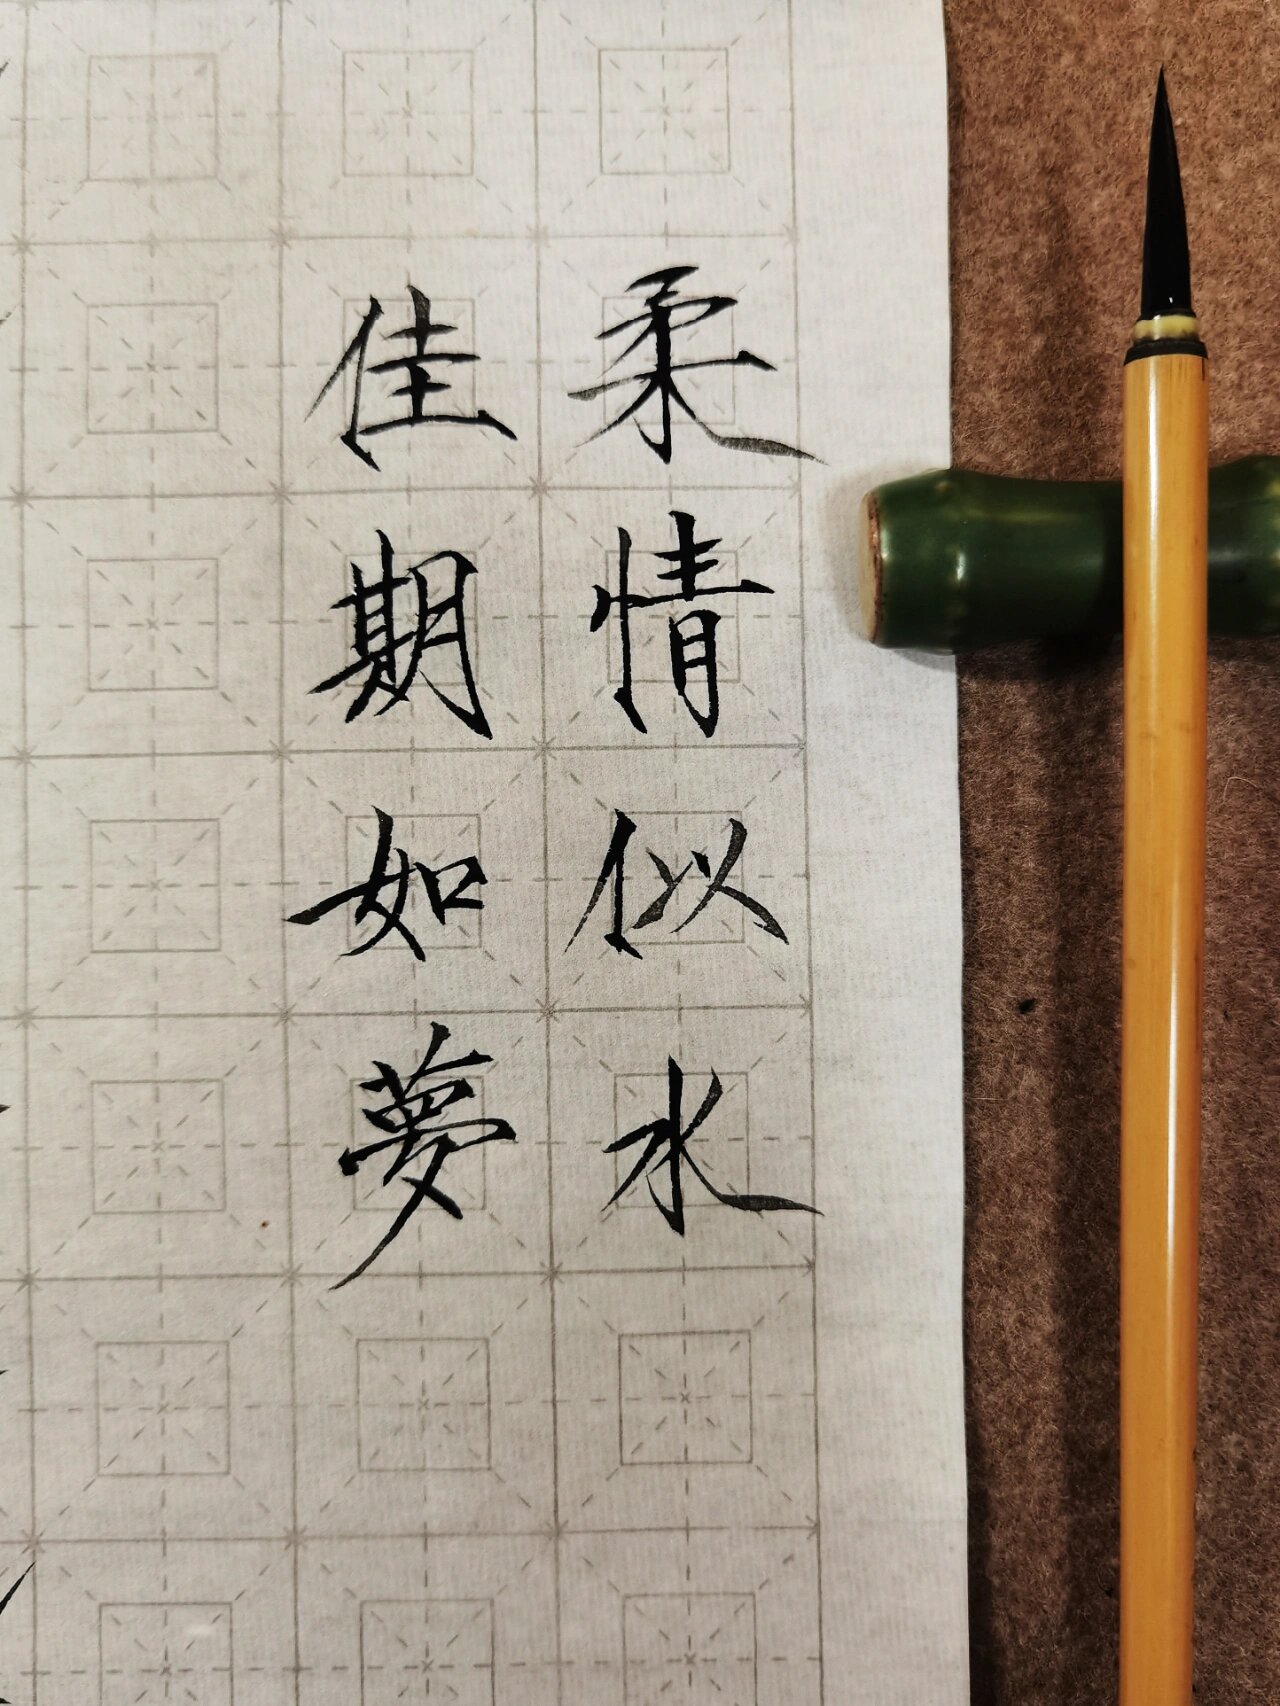 柔情似水
佳期如夢